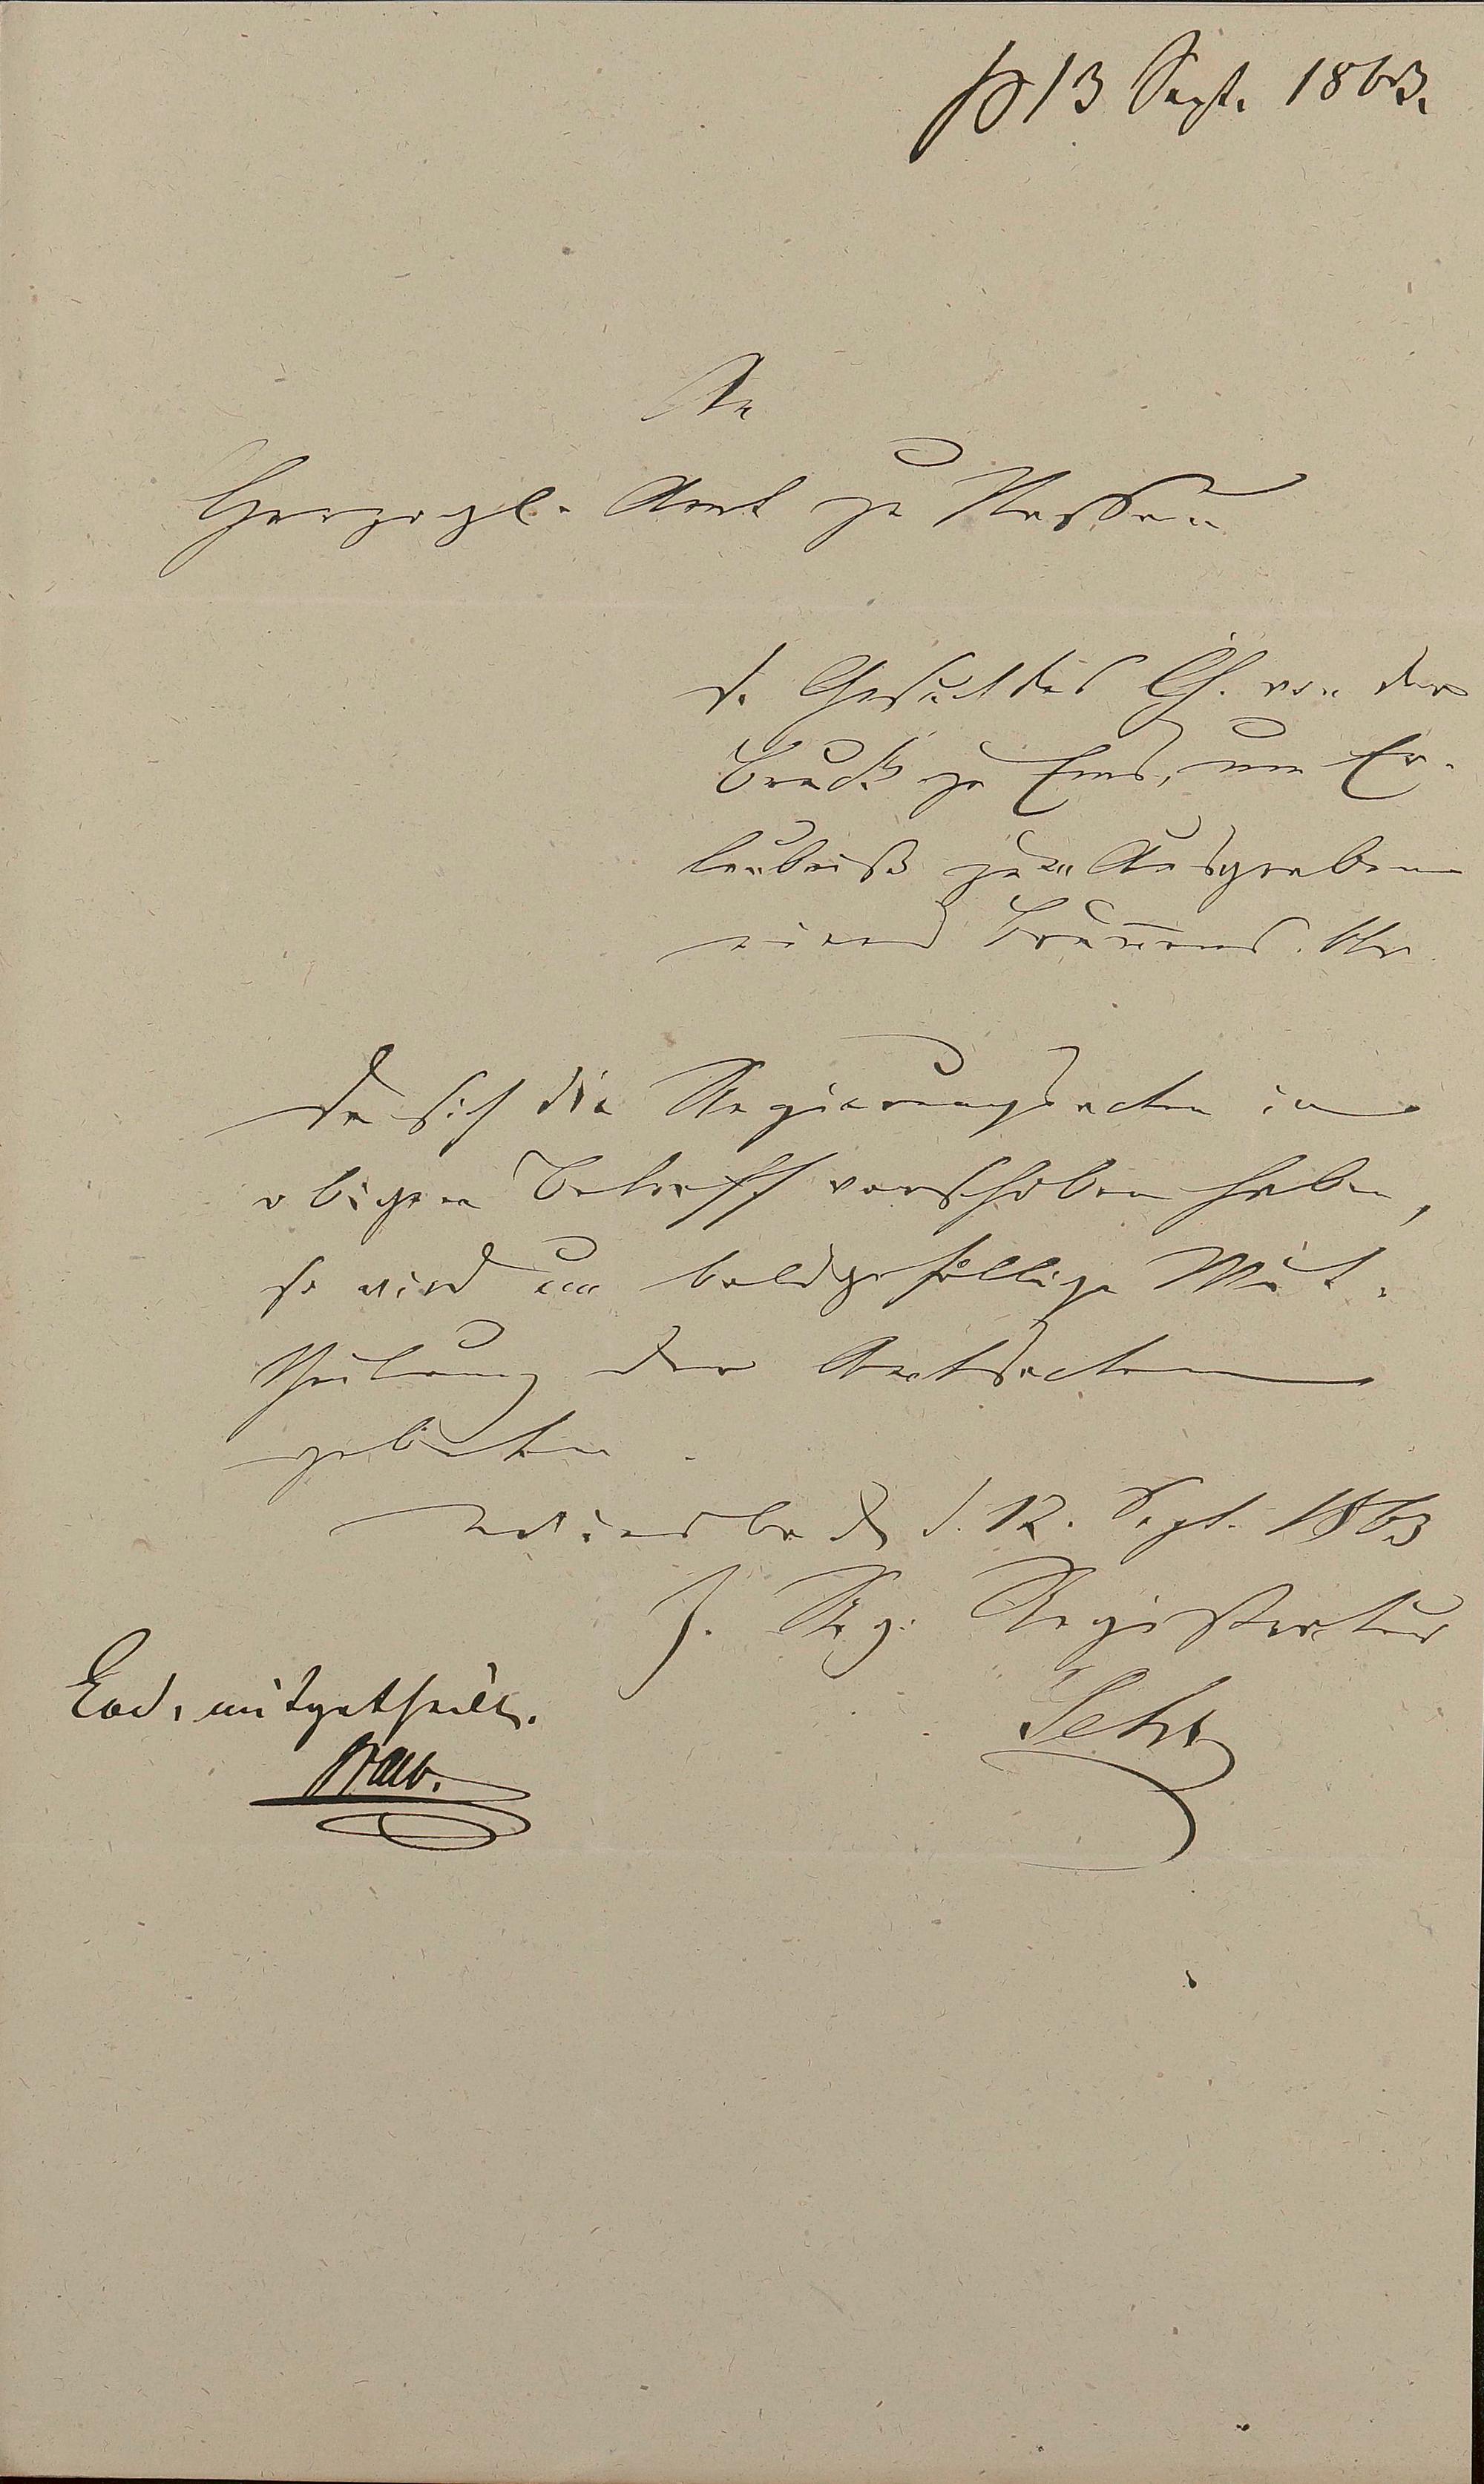 13 Sept. 1863.
An
Herzogl. Amt zu Nassau
d. Gesuch des Ch. von der
Bruck zu Ems, um Er-
laubniß zum Ausgraben
eines Brunnens btr.
Da sich die Regierungsacten in
obigem Betreff verschoben haben,
so wird um baldgefällige Mit-
theilung der Amtsacten
gebeten.
Wiesbad d. 12. Sept. 1863
H. Reg. Registratur
Eod. mitgetheilt.